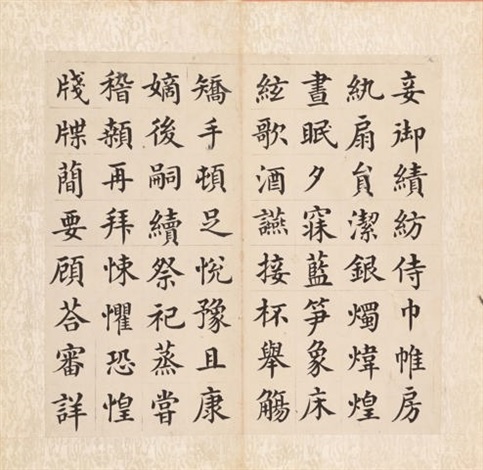 妾御績紡侍巾帷房
紈扇貟潔銀燭煒煌
晝眠夕寐藍笋象床
絃歌酒讌接杯舉觴
矯手頓足悅豫且康
嫡後嗣續祭祀蒸嘗
稽顙再拜悚懼恐惶
牋牒簡要顧荅審詳